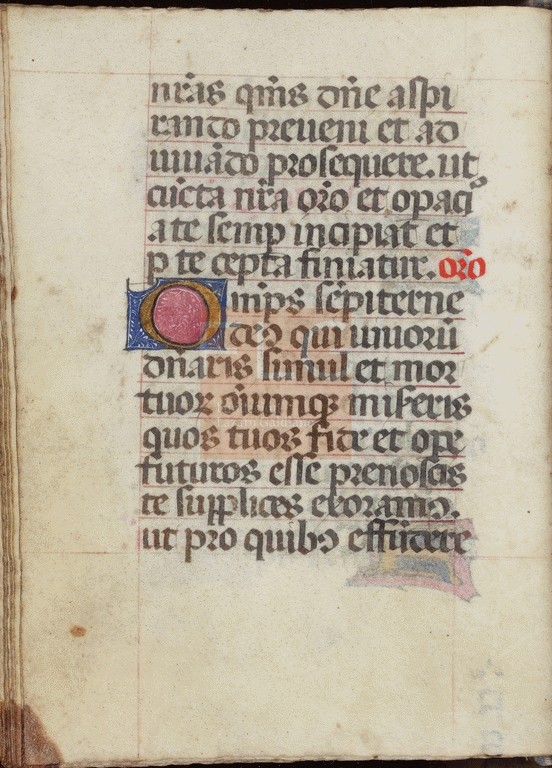 nr̃as qm̃s dñe aspi
rando preueni et ad
iuuãdo prosequere. ut
cũcta nr̃a or̃o et opaciº
a te semp incipiat et
p te cepta finiatur. or̃o
Om̃ps sẽpiterne
deꝰ qui uiuorũ
dñaris simul et mor
tuoꝝ õiumqꝫ misereris
quos tuos fide et ope
futuros esse prenoscis
te supplices exoramꝰ.
ut pro quibꝰ effũdere